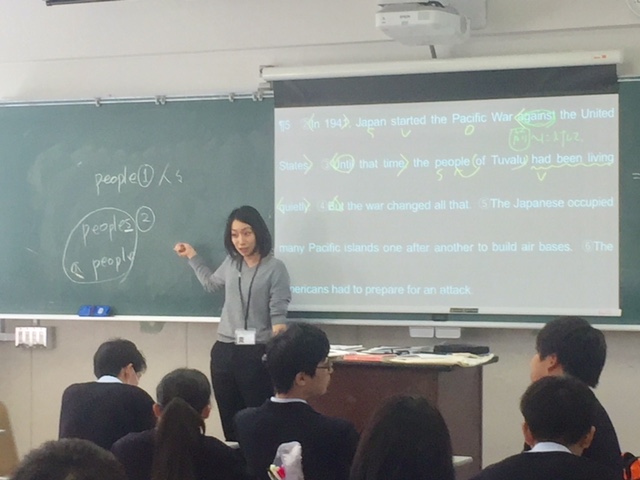 people ① 人々
peoples ②
a people
§5 ② In 1941, Japan started the Pacific War against the United
S V O
States. ③ Until that time, the people of Tuvalu had been living
S V
quietly. ④ But the war changed all that. ⑤ The Japanese occupied
many Pacific islands one after another to build air bases. ⑥ The
Americans had to prepare for an attack.